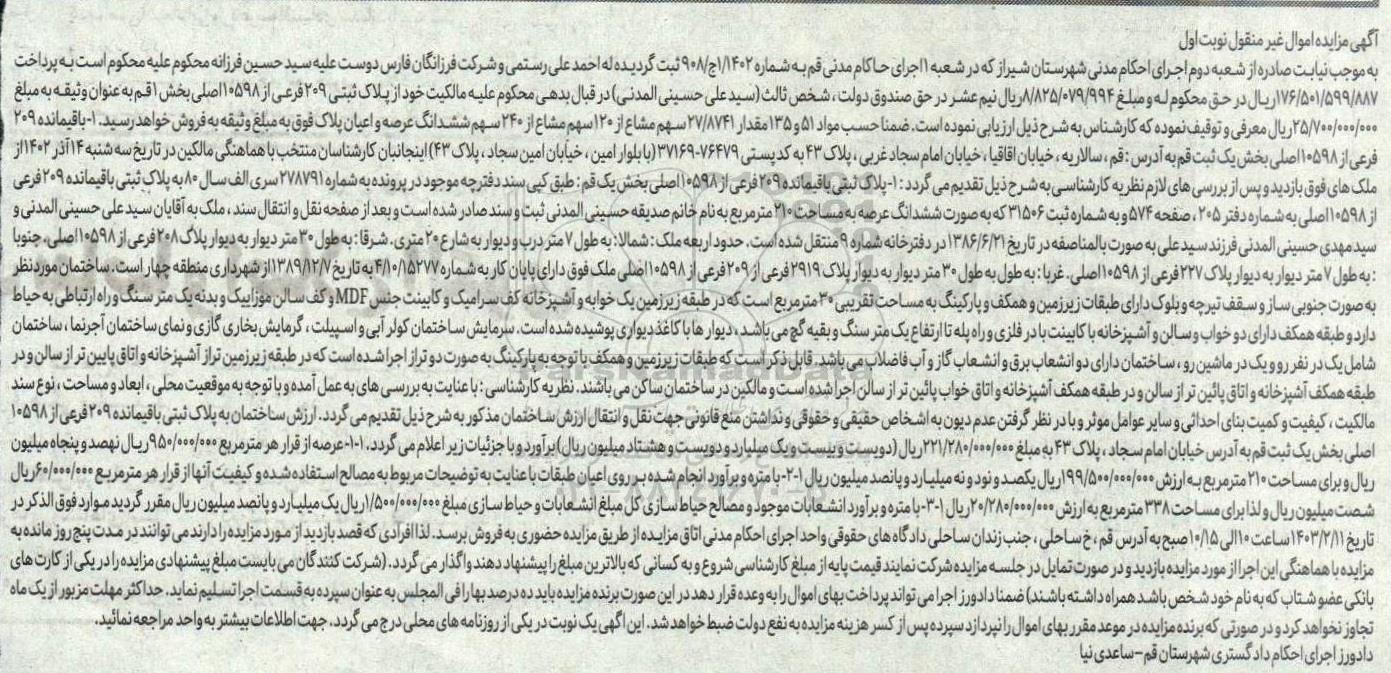 آگهی مزایده اموال غیر منقول نوبت اول
به موجب نیابت صادره از شعبه دوم اجرای احکام مدنی شهرستان شیراز که در شعبه ۱ اجرای حاکام مدنی قم به شماره ۱/۱۴۰۲ج/۹۰۸ ثبت گردیده له احمد علی رستمی و شرکت فرزانگان فارس دوست علیه سید حسین فرزانه محکوم علیه محکوم است به پرداخت
۱۷۶/۵۰۱/۵۹۹/۸۸۷ ریال در حق محکوم له و مبلغ ۸/۸۲۵/۰۷۹/۹۹۴ ریال نیم عشر در حق صندوق دولت، شخص ثالث (سید علی حسینی المدنی) در قبال بدهی محکوم علیه مالکیت خود از پلاک ثبتی ۲۰۹ فرعی از ۱۰۵۹۸ اصلی بخش ۱ قم به عنوان وثیقه به مبلغ
۲۵/۷۰۰/۰۰۰/۰۰۰ ریال معرفی و توقیف نموده که کارشناس به شرح ذیل ارزیابی نموده است. ضمنا حسب مواد ۵۱ و ۱۳۵ مقدار ۲۷/۸۷۴۱ سهم مشاع از ۱۲۰ سهم مشاع از ۲۴۰ سهم ششدانگ عرصه و اعیان پلاک فوق به مبلغ وثیقه به فروش خواهد رسید. ۱-باقیمانده ۲۰۹
فرعی از ۱۰۵۹۸ اصلی بخش یک ثبت قم به آدرس: قم، سالاریه، خیابان اقاقیا، خیابان امام سجاد غربی، پلاک ۴۳ به کد پستی ۷۶۴۷۹-۳۷۱۶۹ (یا بلوار امین، خیابان امین سجاد، پلاک ۴۳) اینجانبان کارشناسان منتخب با هماهنگی مالکین در تاریخ سه شنبه ۱۴ آذر ۱۴۰۲ از
ملک های فوق بازدید و پس از بررسی های لازم نظریه کارشناسی به شرح ذیل تقدیم می گردد: ۱-پلاک ثبتی باقیمانده ۲۰۹ فرعی از ۱۰۵۹۸ اصلی بخش یک قم: طبق کپی سند دفترچه موجود در پرونده به شماره ۲۷۸۷۹۱ سری الف سال ۸۰ به پلاک ثبتی باقیمانده ۲۰۹ فرعی
از ۱۰۵۹۸ اصلی به شماره دفتر ۲۰۵، صفحه ۵۷۴ و به شماره ثبت ۳۱۵۰۶ که به صورت ششدانگ عرصه به مساحت ۲۱۰ مترمربع به نام خانم صدیقه حسینی المدنی ثبت و سند صادر شده است و بعد از صفحه نقل و انتقال سند، ملک به آقایان سید علی حسینی المدنی و
سید مهدی حسینی المدنی فرزند سید علی به صورت بالمناصفه در تاریخ ۱۳۸۶/۶/۲۱ در دفترخانه شماره ۹ منتقل شده است. حدود اربعه ملک: شمالا: به طول ۷ متر درب و دیوار به شارع ۲۰ متری. شرقا: به طول ۳۰ متر دیوار به دیوار پلاک ۲۰۸ فرعی از ۱۰۵۹۸ اصلی. جنوبا
: به طول ۷ متر دیوار به دیوار پلاک ۲۲۷ فرعی از ۱۰۵۹۸ اصلی. غربا: به طول به طول ۳۰ متر دیوار به دیوار پلاک ۲۹۱۹ فرعی از ۲۰۹ فرعی از ۱۰۵۹۸ اصلی ملک فوق دارای پایان کار به شماره ۴/۱۰/۱۵۲۷۷ به تاریخ ۱۳۸۹/۱۲/۷ از شهرداری منطقه چهار است. ساختمان موردنظر
به صورت جنوبی ساز و سقف تیرچه و بلوک دارای طبقات زیرزمین و همکف و پارکینگ به مساحت تقریبی ۳۰ مترمربع است که در طبقه زیرزمین یک خوابه و آشپزخانه کف سرامیک و کابینت جنس MDF و کف سالن موزاییک و بدنه یک متر سنگ و راه ارتباطی به حیاط
دارد و طبقه همکف دارای دو خواب و سالن و آشپزخانه با کابینت با در فلزی و راه پله تا ارتفاع یک متر سنگ و بقیه گچ می باشد، دیوار ها با کاغذ دیواری پوشیده شده است. سرمایش ساختمان کولر آبی و اسپیلت، گرمایش بخاری گازی و نمای ساختمان آجرنما، ساختمان
شامل یک در نفر رو و یک در ماشین رو، ساختمان دارای دو انشعاب برق و انشعاب گاز و آب فاضلاب می باشد. قابل ذکر است که طبقات زیرزمین و همکف با توجه به پارکینگ به صورت دو تراز اجرا شده است که در طبقه زیرزمین تراز آشپزخانه و اتاق پایین تر از سالن و در
طبقه همکف آشپزخانه و اتاق پائین تر از سالن و در طبقه همکف آشپزخانه و اتاق خواب پائین تر از سالن اجرا شده است و مالکین در ساختمان ساکن می باشند. نظریه کارشناسی: با عنایت به بررسی های به عمل آمده و با توجه به موقعیت محلی، ابعاد و مساحت، نوع سند
مالکیت، کیفیت و کمیت بنای احداثی و سایر عوامل موثر و با در نظر گرفتن عدم دیون به اشخاص حقیقی و حقوقی و نداشتن منع قانونی جهت نقل و انتقال ارزش ساختمان مذکور به شرح ذیل تقدیم می گردد. ارزش ساختمان به پلاک ثبتی باقیمانده ۲۰۹ فرعی از ۱۰۵۹۸
اصلی بخش یک ثبت قم به آدرس خیابان امام سجاد، پلاک ۴۳ به مبلغ ۲۲۱/۲۸۰/۰۰۰/۰۰۰ ریال (دویست و بیست و یک میلیارد و دویست و هشتاد میلیون ریال) برآورد و با جزئیات زیر اعلام می گردد. ۱-۱-عرصه از قرار هر مترمربع ۹۵۰/۰۰۰/۰۰۰ ریال نهصد و پنجاه میلیون
ریال و برای مساحت ۲۱۰ مترمربع به ارزش ۱۹۹/۵۰۰/۰۰۰/۰۰۰ ریال یکصد و نود و نه میلیارد و پانصد میلیون ریال ۱-۲-با متره و برآورد انجام شده بر روی اعیان طبقات با عنایت به توضیحات مربوط به مصالح استفاده شده و کیفیت آنها از قرار هر مترمربع ۶۰/۰۰۰/۰۰۰ ریال
شصت میلیون ریال و لذا برای مساحت ۳۳۸ مترمربع به ارزش ۲۰/۲۸۰/۰۰۰/۰۰۰ ریال ۱-۳-با متره و برآورد انشعابات موجود و مصالح حیاط سازی کل مبلغ انشعابات و حیاط سازی مبلغ ۱/۵۰۰/۰۰۰/۰۰۰ ریال یک میلیارد و پانصد میلیون ریال مقرر گردید موارد فوق الذکر در
تاریخ ۱۴۰۳/۲/۱۱ ساعت ۱۰ الی ۱۰/۱۵ صبح به آدرس قم، خ ساحلی، جنب زندان ساحلی دادگاه های حقوقی واحد اجرای احکام مدنی اتاق مزایده از طریق مزایده حضوری به فروش برسد. لذا افرادی که قصد بازدید از مورد مزایده را دارند می توانند در مدت پنج روز مانده به
مزایده با هماهنگی این اجرا از مورد مزایده بازدید و در صورت تمایل در جلسه مزایده شرکت نمایند قیمت پایه از مبلغ کارشناسی شروع و به کسانی که بالاترین مبلغ را پیشنهاد دهند واگذار می گردد. (شرکت کنندگان می بایست مبلغ پیشنهادی مزایده را در یکی از کارت های
بانکی عضو شتاب که به نام خود شخص باشد همراه داشته باشند) ضمنا دادورز اجرا می تواند پرداخت بهای اموال را به وعده قرار دهد در این صورت برنده مزایده باید ده درصد بها را فی المجلس به عنوان سپرده به قسمت اجرا تسلیم نماید. حداکثر مهلت مزبور از یک ماه
تجاوز نخواهد کرد و در صورتی که برنده مزایده در موعد مقرر بهای اموال را نپردازد سپرده پس از کسر هزینه مزایده به نفع دولت ضبط خواهد شد. این آگهی یک نوبت در یکی از روزنامه های محلی درج می گردد. جهت اطلاعات بیشتر به واحد مراجعه نمائید.
دادورز اجرای احکام دادگستری شهرستان قم-ساعدی نیا